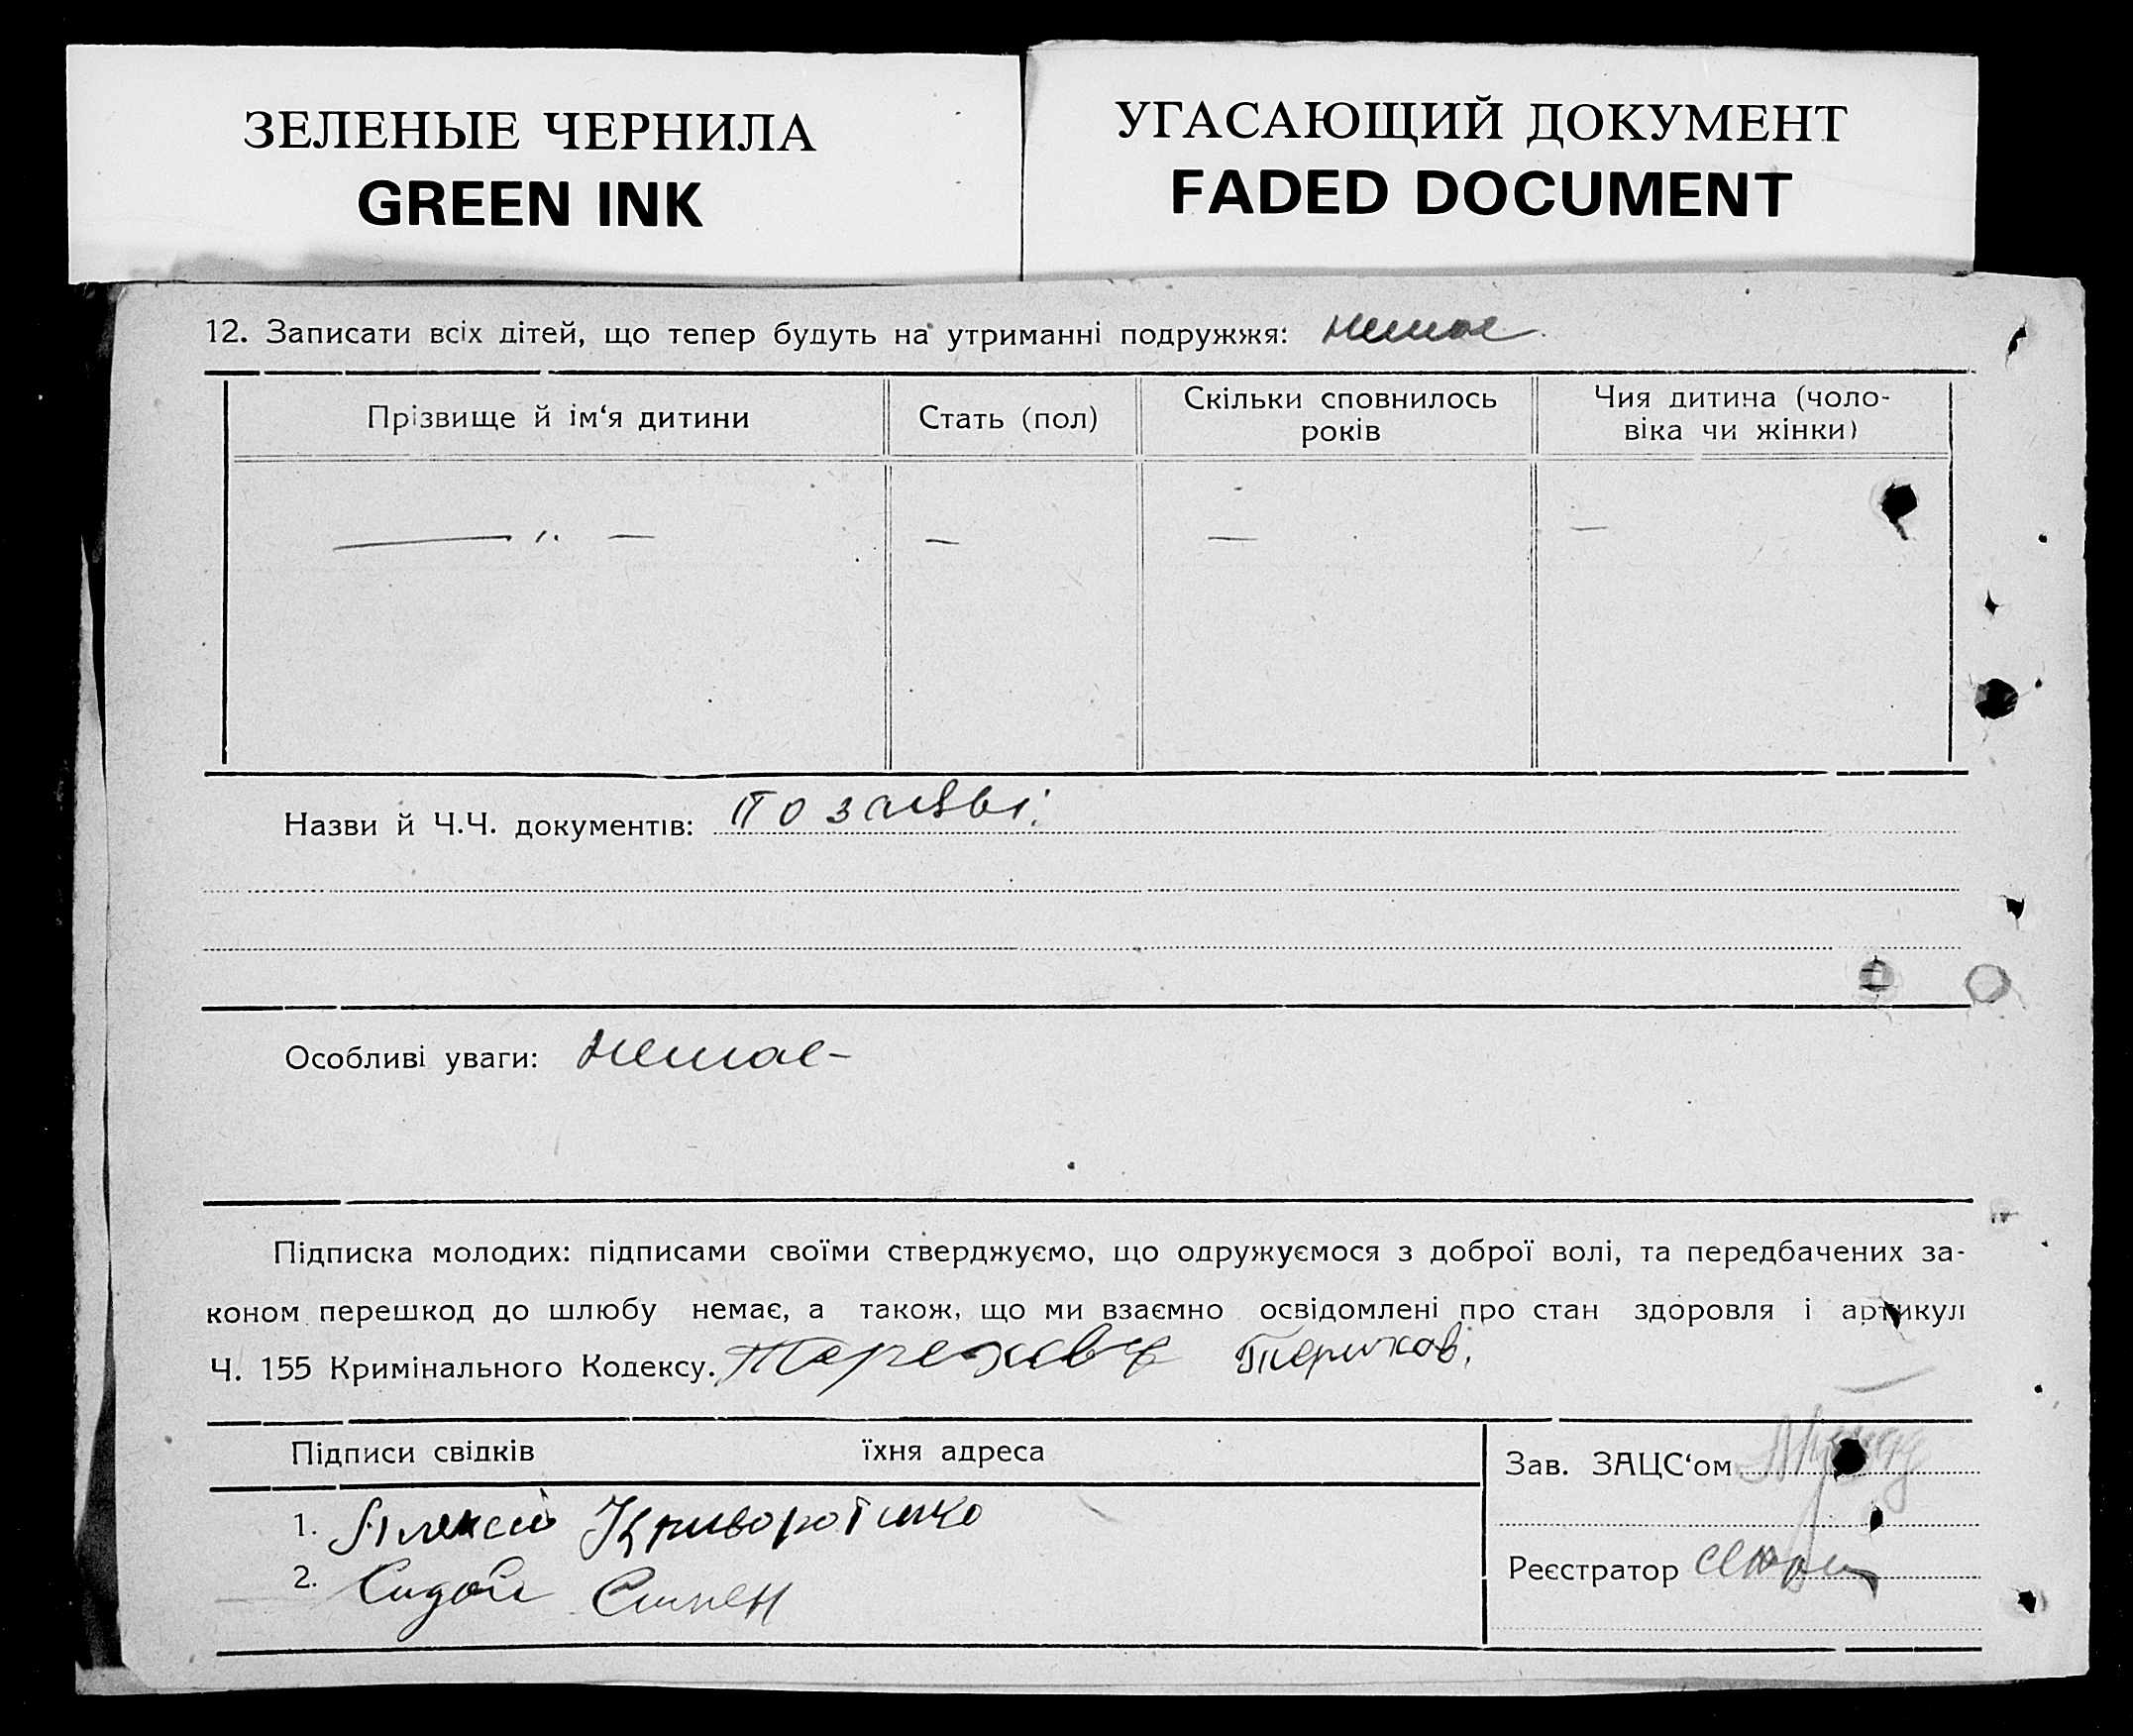 ЗЕЛЕНЫЕ ЧЕРНИЛА
GREEN INK
УГАСАЮЩИЙ ДОКУМЕНТ
FADED DOCUMENT
12. Записати всіх дітей, що тепер будуть на утриманні подружжя: немає
Прізвище й ім‘я дитини
Стать (пол)
Скільки сповнилось
років
Чия дитина (чоло-
віка чи жінки)
— „ — — — —
Назви й Ч.Ч. документів: По заяві
Особливі уваги: Немає -
Підписка молодих: підписами своїми стверджуємо, що одружуємося з доброї волі, та передбачених за-
коном перешкод до шлюбу немає, а також, що ми взаємно освідомлені про стан здоровля і артикул
Ч. 155 Кримінального Кодексу.
Підписи свідків їхня адреса
1. Алексей Криворотько
2.
Зав. ЗАЦС‘ом
Реєстратор